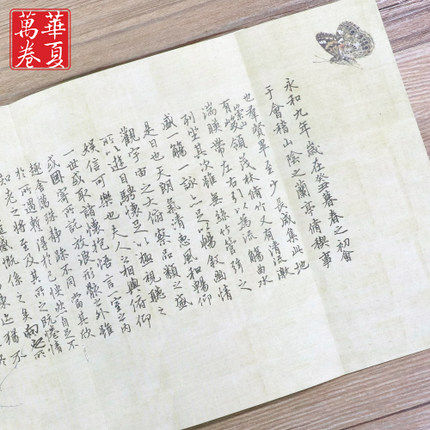 華夏
萬卷
永和九年歲在癸丑暮春之初會
于會稽山陰之蘭亭脩禊事
也羣賢畢至少長咸集此地
有崇山峻領茂林脩竹又有清流激
湍暎帶左右引以為流觴曲水
列坐其次雖無絲竹管絃之
盛一觴一詠亦足以暢敘幽情
是日也天朗氣清惠風和暢仰
觀宇宙之大俯察品類之盛
所以遊目騁懷足以極視聽之
娛信可樂也夫人之相與俯仰
一世或取諸懷抱悟言一室之內
或因寄所託放浪形骸之外雖
趣舍萬殊靜躁不同當其欣
於所遇暫得於己快然自足不
知老之將至及其所之既惓情
遷感慨係之矣向之所